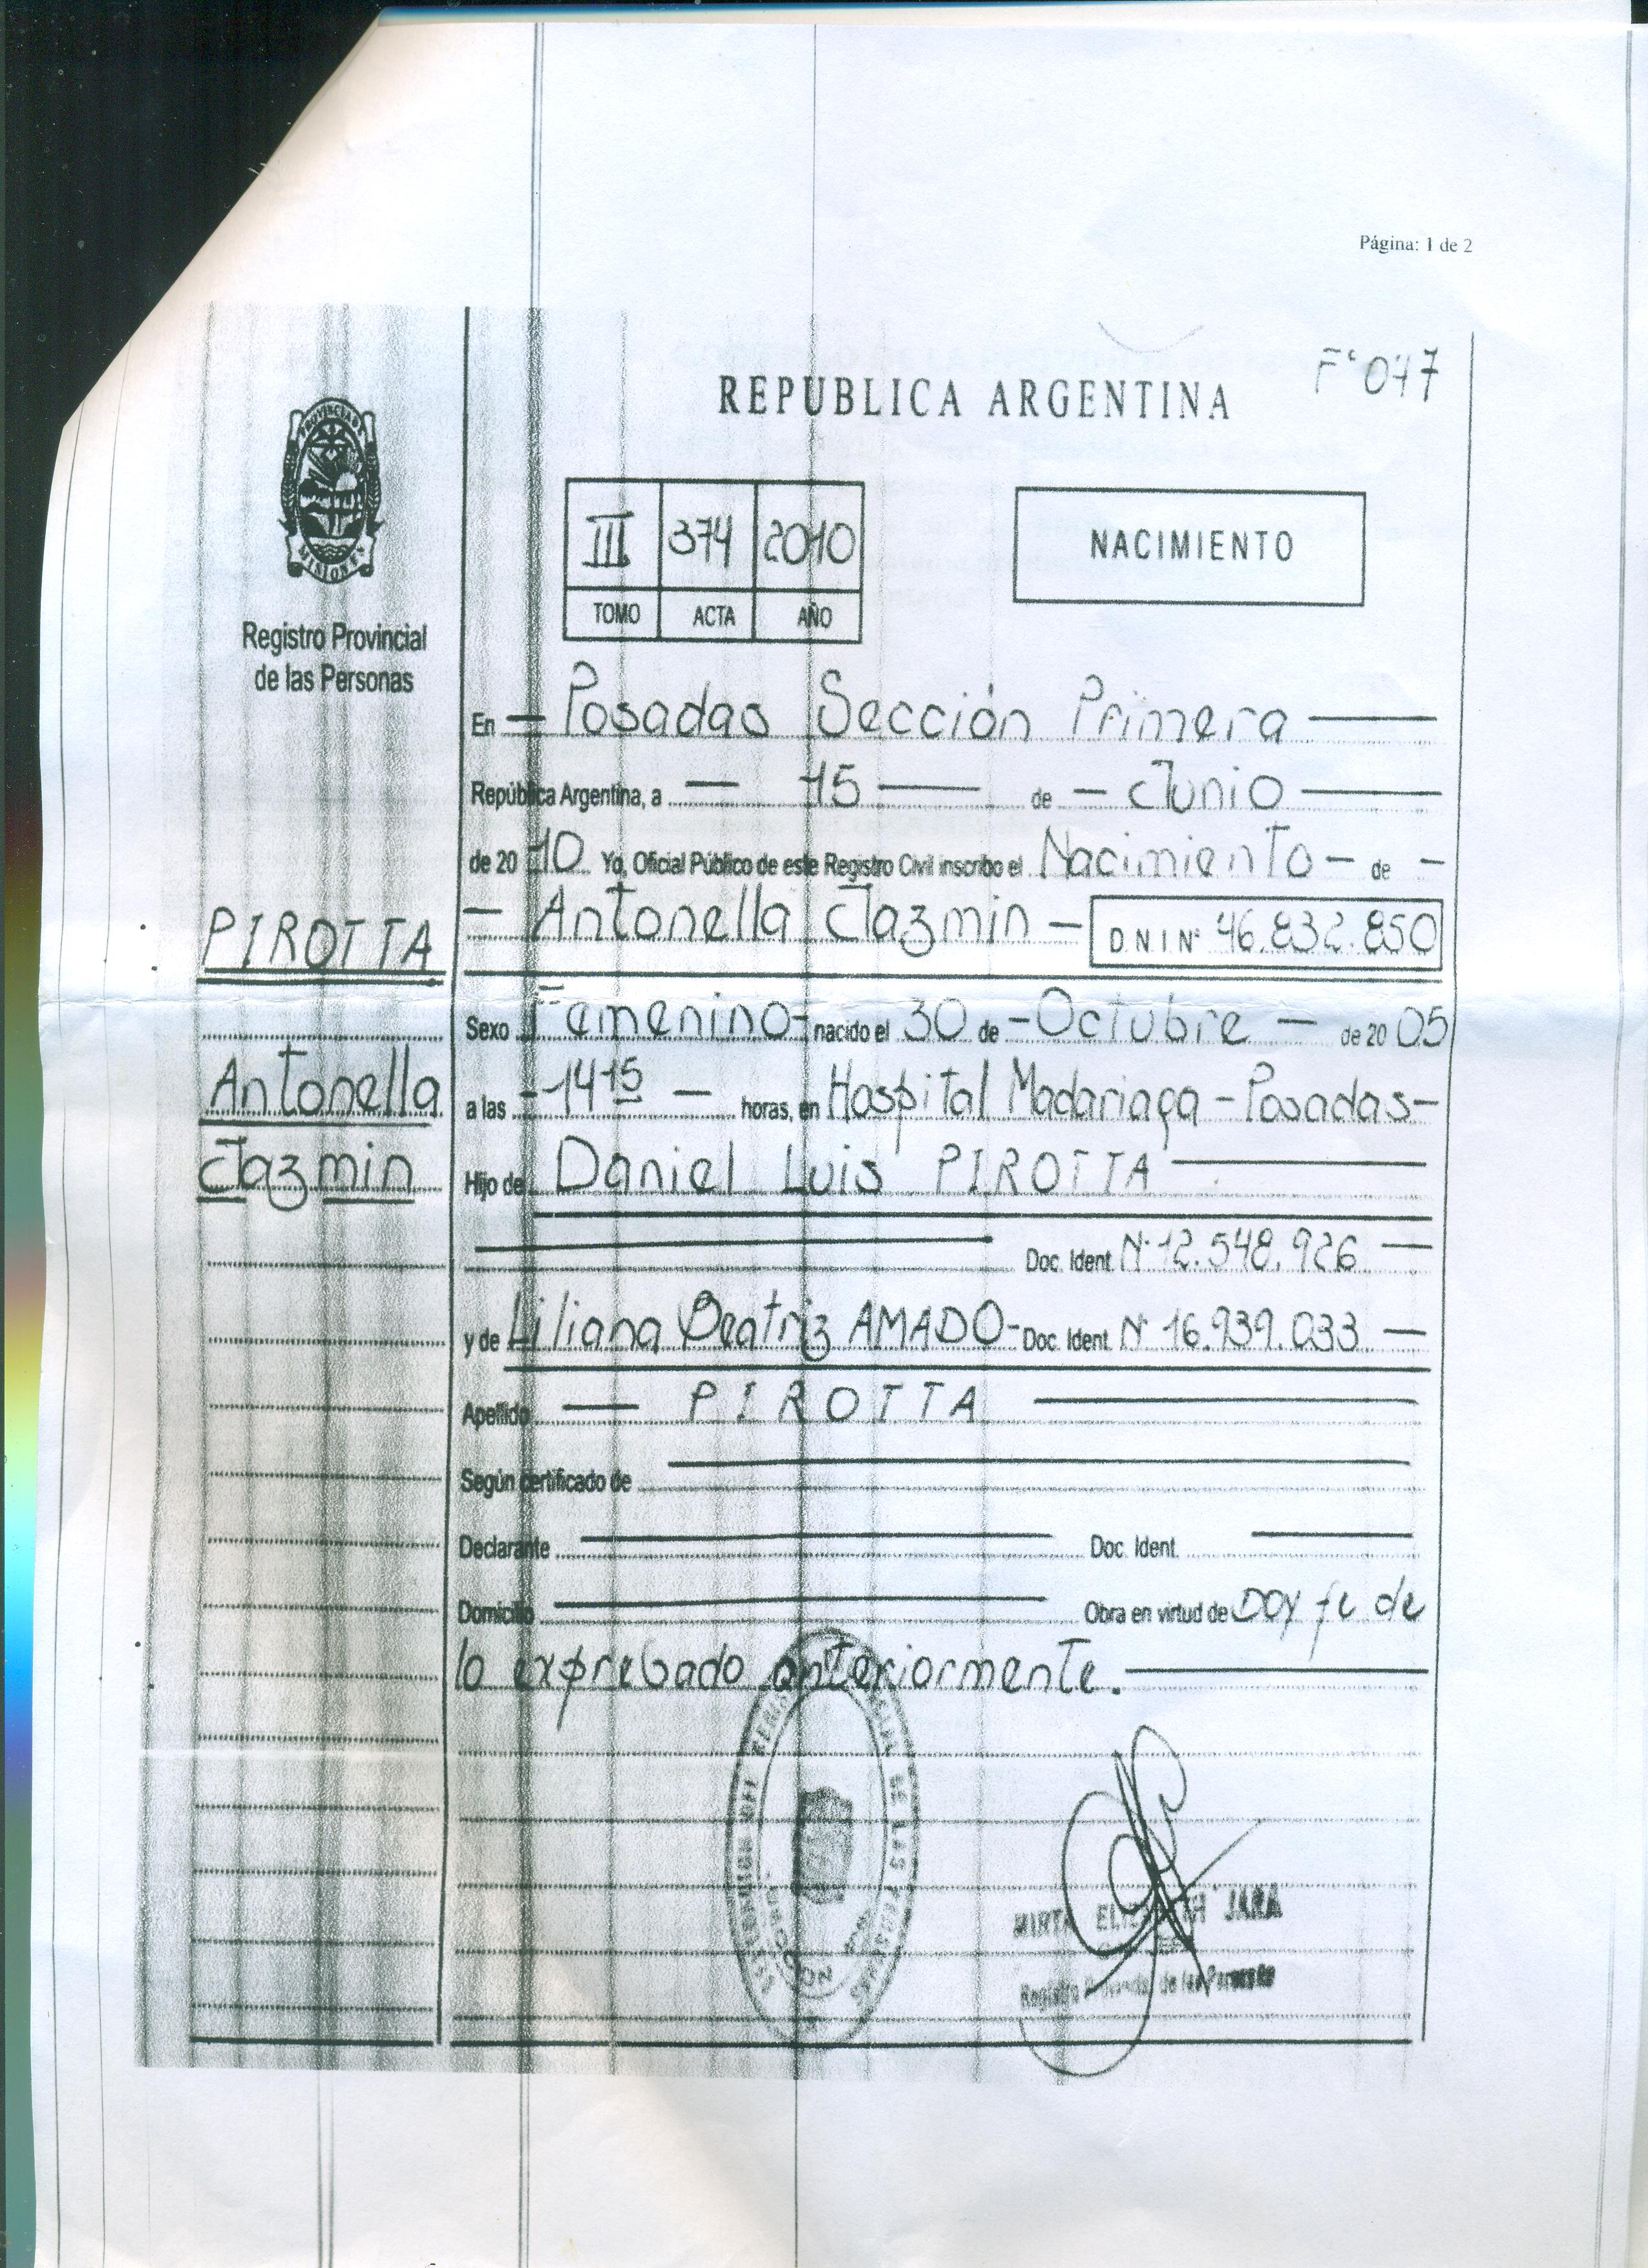 Página: 1 de 2
F° 047
REPUBLICA ARGENTINA
PROVINCIA DE
MISIONES
Registro Provincial
de las Personas
III 374 2010
TOMO ACTA AÑO
NACIMIENTO
En Posadas Sección Primera
República Argentina, a 15 de Junio
de 20 10 Yo, Oficial Público de este Registro Civil inscribo el Nacimiento de
Antonella Jazmin DNI Nº 46.832.850
PIROTTA
Antonella
Jazmin
Sexo Femenino nacido el 30 de Octubre de 20 05
a las 14 15 horas, en Hospital Madariaga - Posadas
Hijo de Daniel Luis PIROTTA
Doc. Ident. Nº 12.548.926
y de Liliana Beatriz AMADO Doc. Ident. Nº 16.939.033
Apellido PIROTTA
Según certificado de
Declarante Doc. Ident.
Domicilio Obra en virtud de Doy fe de
lo exprebado anteriormente.
MIRTA JARA
Registro de las Personas